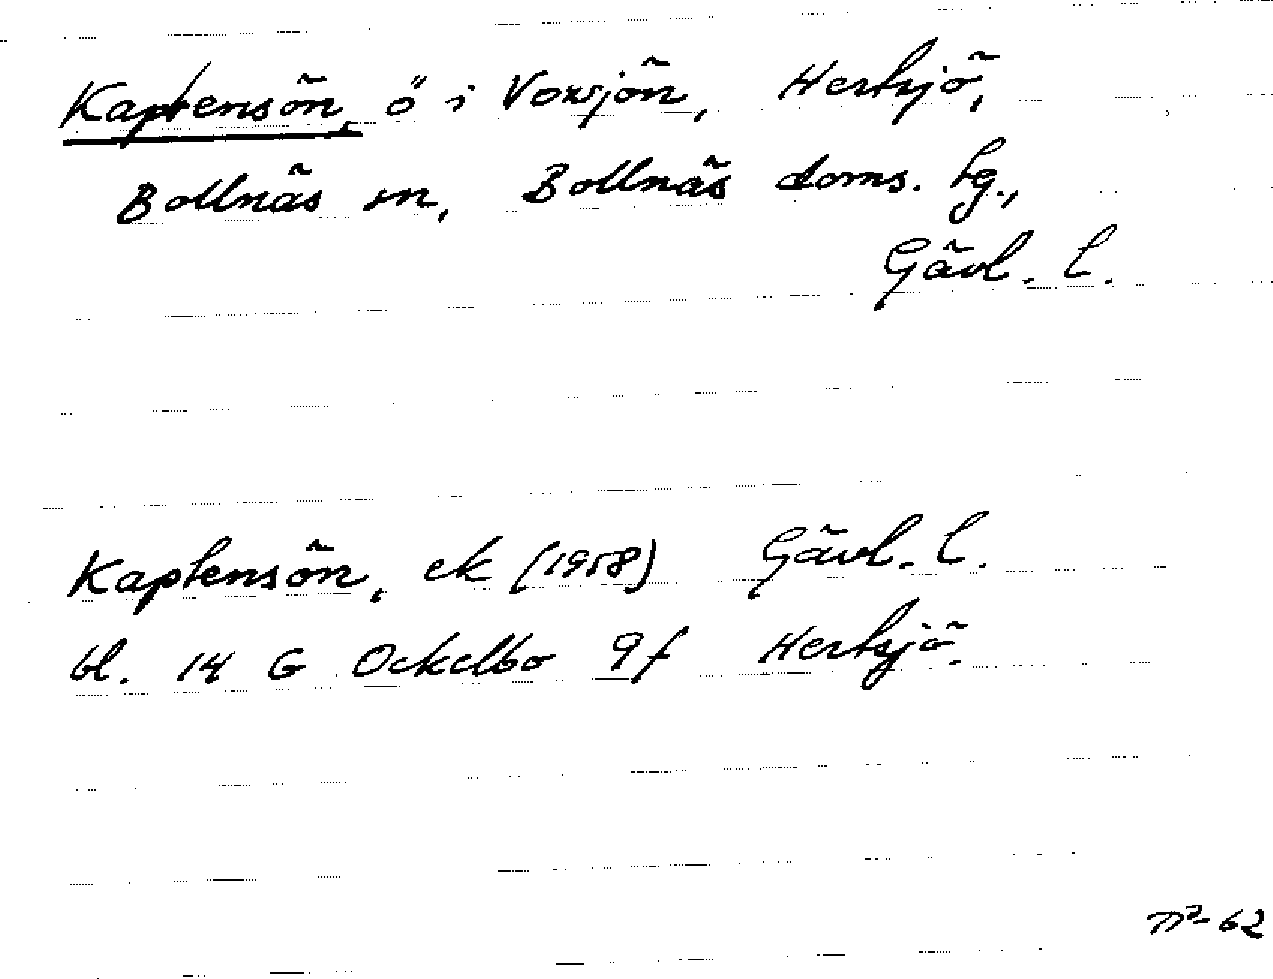 Kaptensön, ö i Voxsjön, Hertsjö,
Bollnäs sn, Bollnäs doms. tg.,
Gävl. l.
Kaptensön, ek (1958) Gävl. l.
bl. 14 G Ockelbo 9f Hertsjö.